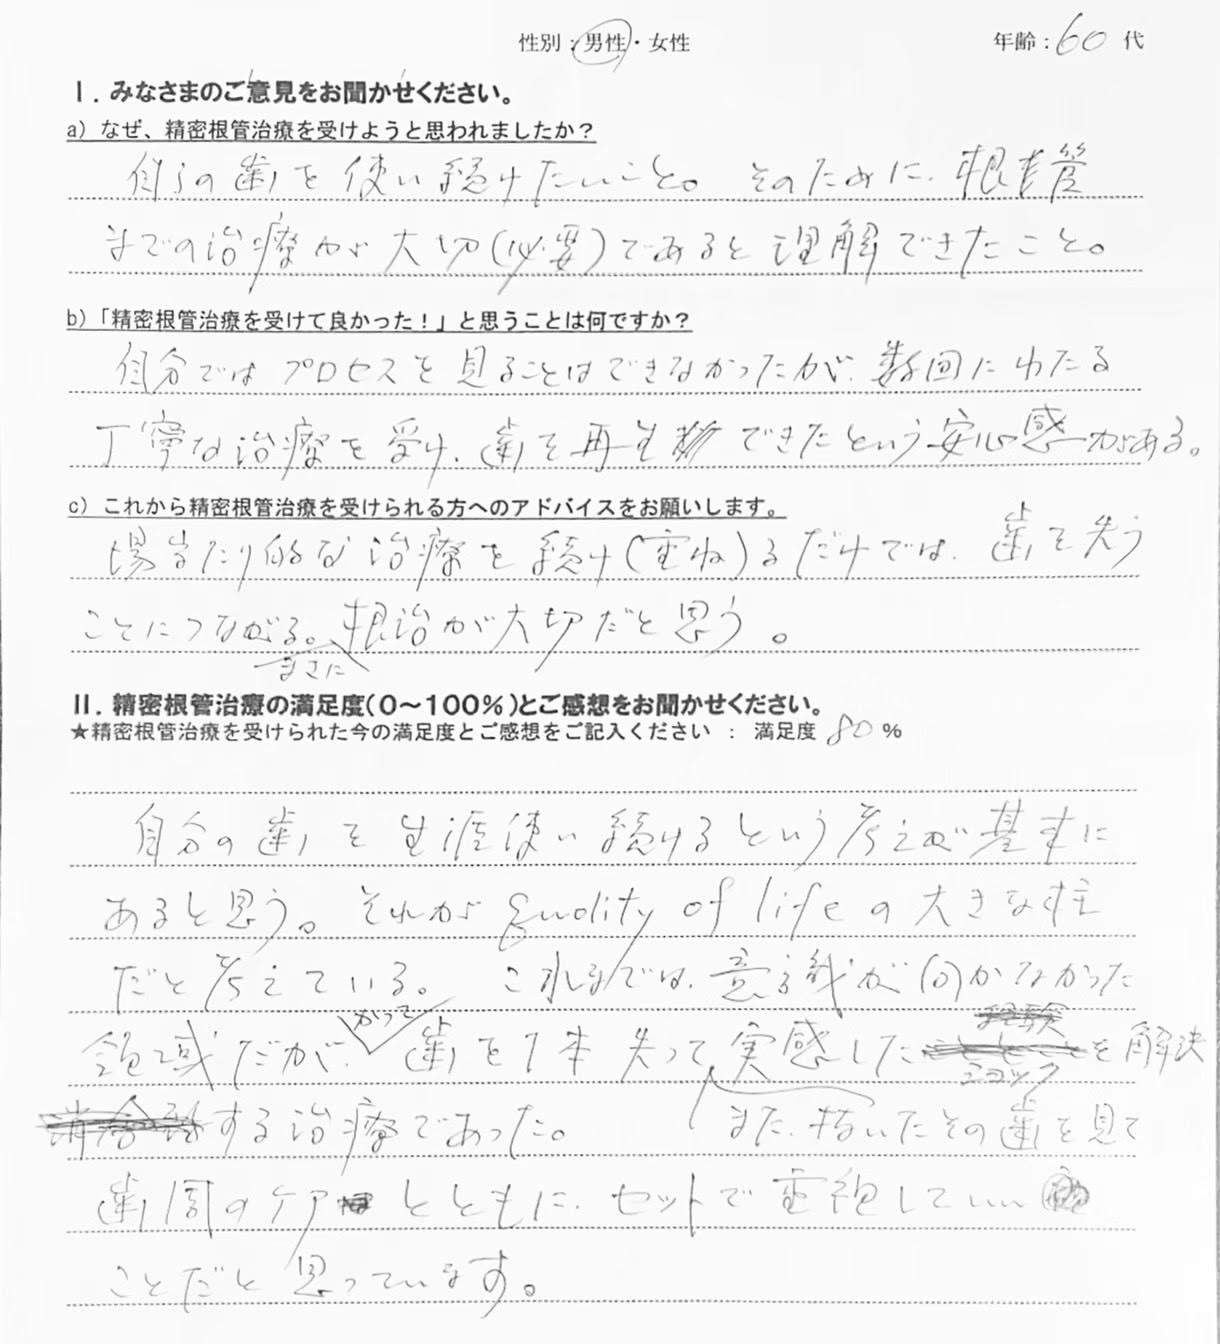 性別：男性・女性　年齢：60代
Ⅰ．みなさまのご意見をお聞かせください。
a）なぜ、精密根管治療を受けようと思われましたか？
自らの歯を使い続けたいこと。そのために、根管
までの治療が大切（必要）であると理解できたこと。
b）「精密根管治療を受けて良かった！」と思うことは何ですか？
自分ではプロセスを見ることはできなかったが、数回にわたる
丁寧な治療を受け、歯を再生できたという安心感がある。
c）これから精密根管治療を受けられる方へのアドバイスをお願いします。
場当たり的な治療を続け（重ね）るだけでは、歯を失う
ことにつながる。根治が大切だと思う。
まさに
Ⅱ．精密根管治療の満足度（0～100％）とご感想をお聞かせください。
★精密根管治療を受けられた今の満足度とご感想をご記入ください ： 満足度 80 ％
自分の歯を生涯使い続けるという考えが基本に
あると思う。それが quality of life の大きな柱
だと考えている。これまでは、意識が向かなかった
かつて
領域だが、歯を1本失って実感した を解決
ショック
する治療であった。また、抜いたその歯を見て
歯周のケアとともに、セットで重視していい
ことだと思っています。